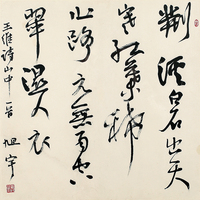 荆溪白石出天
寒红葉稀
山路元無雨空
翠湿人衣
王维诗山中一首
旭宇